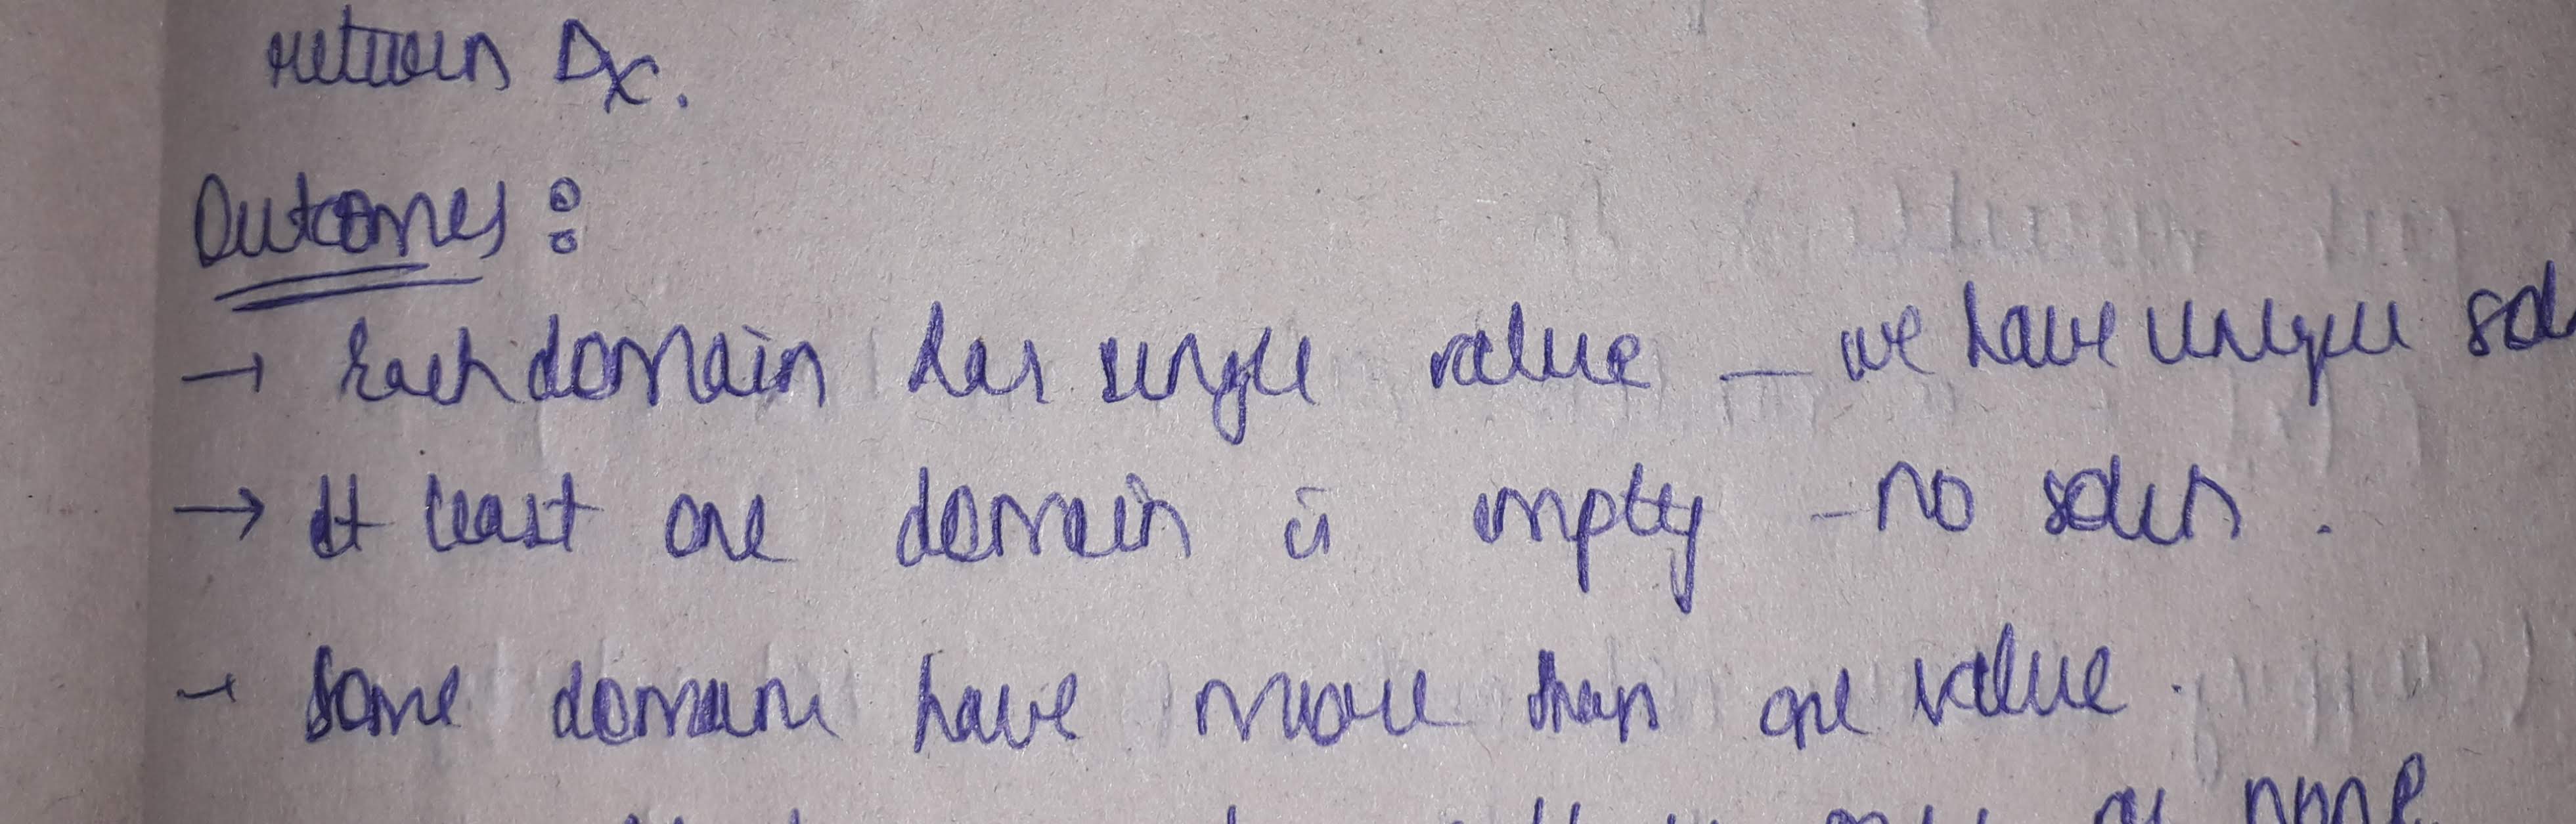 return Dx.
Outcomes :
→ Each domain has single value — we have unique sol
→ At least one domain is empty - no soln .
→ Some domain have more than one value .
or none